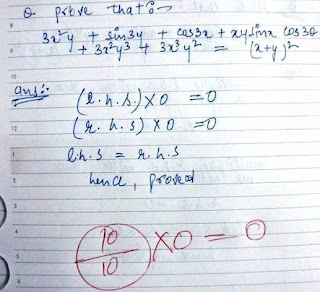 Q prove that :-
3x²y + sin3y + cos3x + xysinx cos3θ
+ 3x²y³ + 3x³y² = (x+y)²
ans:-
(l.h.s.) X 0 = 0
(r.h.s) X 0 = 0
l.h.s = r.h.s
hence, proved
10/10 X 0 = 0